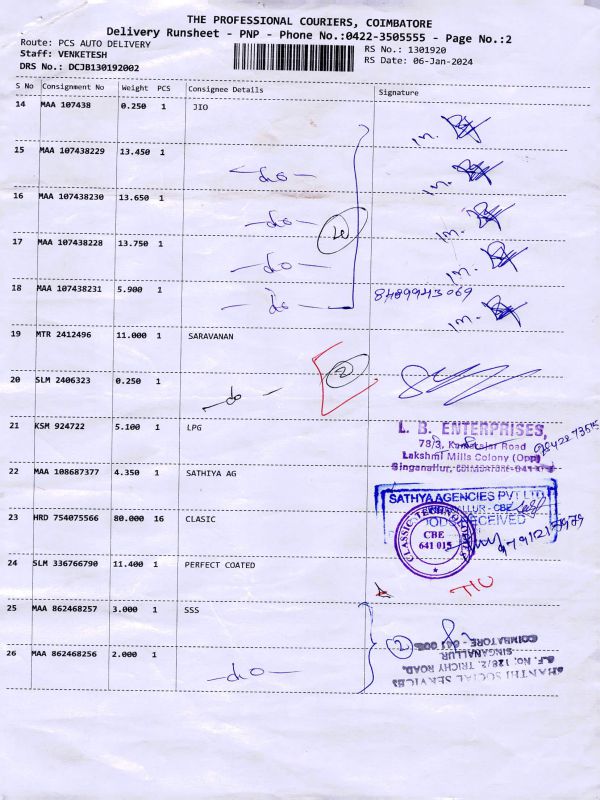 THE PROFESSIONAL COURIERS, COIMBATORE
Delivery Runsheet - PNP - Phone No.:0422-3505555 - Page No.:2
Route: PCS AUTO DELIVERY
RS No.: 1301920
Staff: VENKETESH
RS Date: 06-Jan-2024
DRS No.: DCJB130192002
S No Consignment No Weight PCS Consignee Details Signature
14 MAA 107438 0.250 1 JIO
15 MAA 107438229 13.450 1 -do-
16 MAA 107438230 13.650 1 -do-
17 MAA 107438228 13.750 1 -do-
18 MAA 107438231 5.900 1 -do- 8489943069
19 MTR 2412496 11.000 1 SARAVANAN
20 SLM 2406323 0.250 1 -do- 2
21 KSM 924722 5.100 1 LPG
L. B. ENTERPRISES,
78/3, Kamarajar Road
Lakshmi Mills Colony (Opp)
Singanallur, COIMBATORE-641
22 MAA 108687377 4.350 1 SATHIYA AG
SATHYA AGENCIES PVT LTD
23 HRD 754075566 80.000 16 CLASIC
CLASSIC TECHNOLOGIES
CBE
641 015
24 SLM 336766790 11.400 1 PERFECT COATED
25 MAA 862468257 3.000 1 SSS 2
26 MAA 862468256 2.000 1 -do-
SHANTHI SOCIAL SERVICES
S.F. No: 128/2, TRICHY ROAD,
SINGANALLUR
COIMBATORE - 641 005